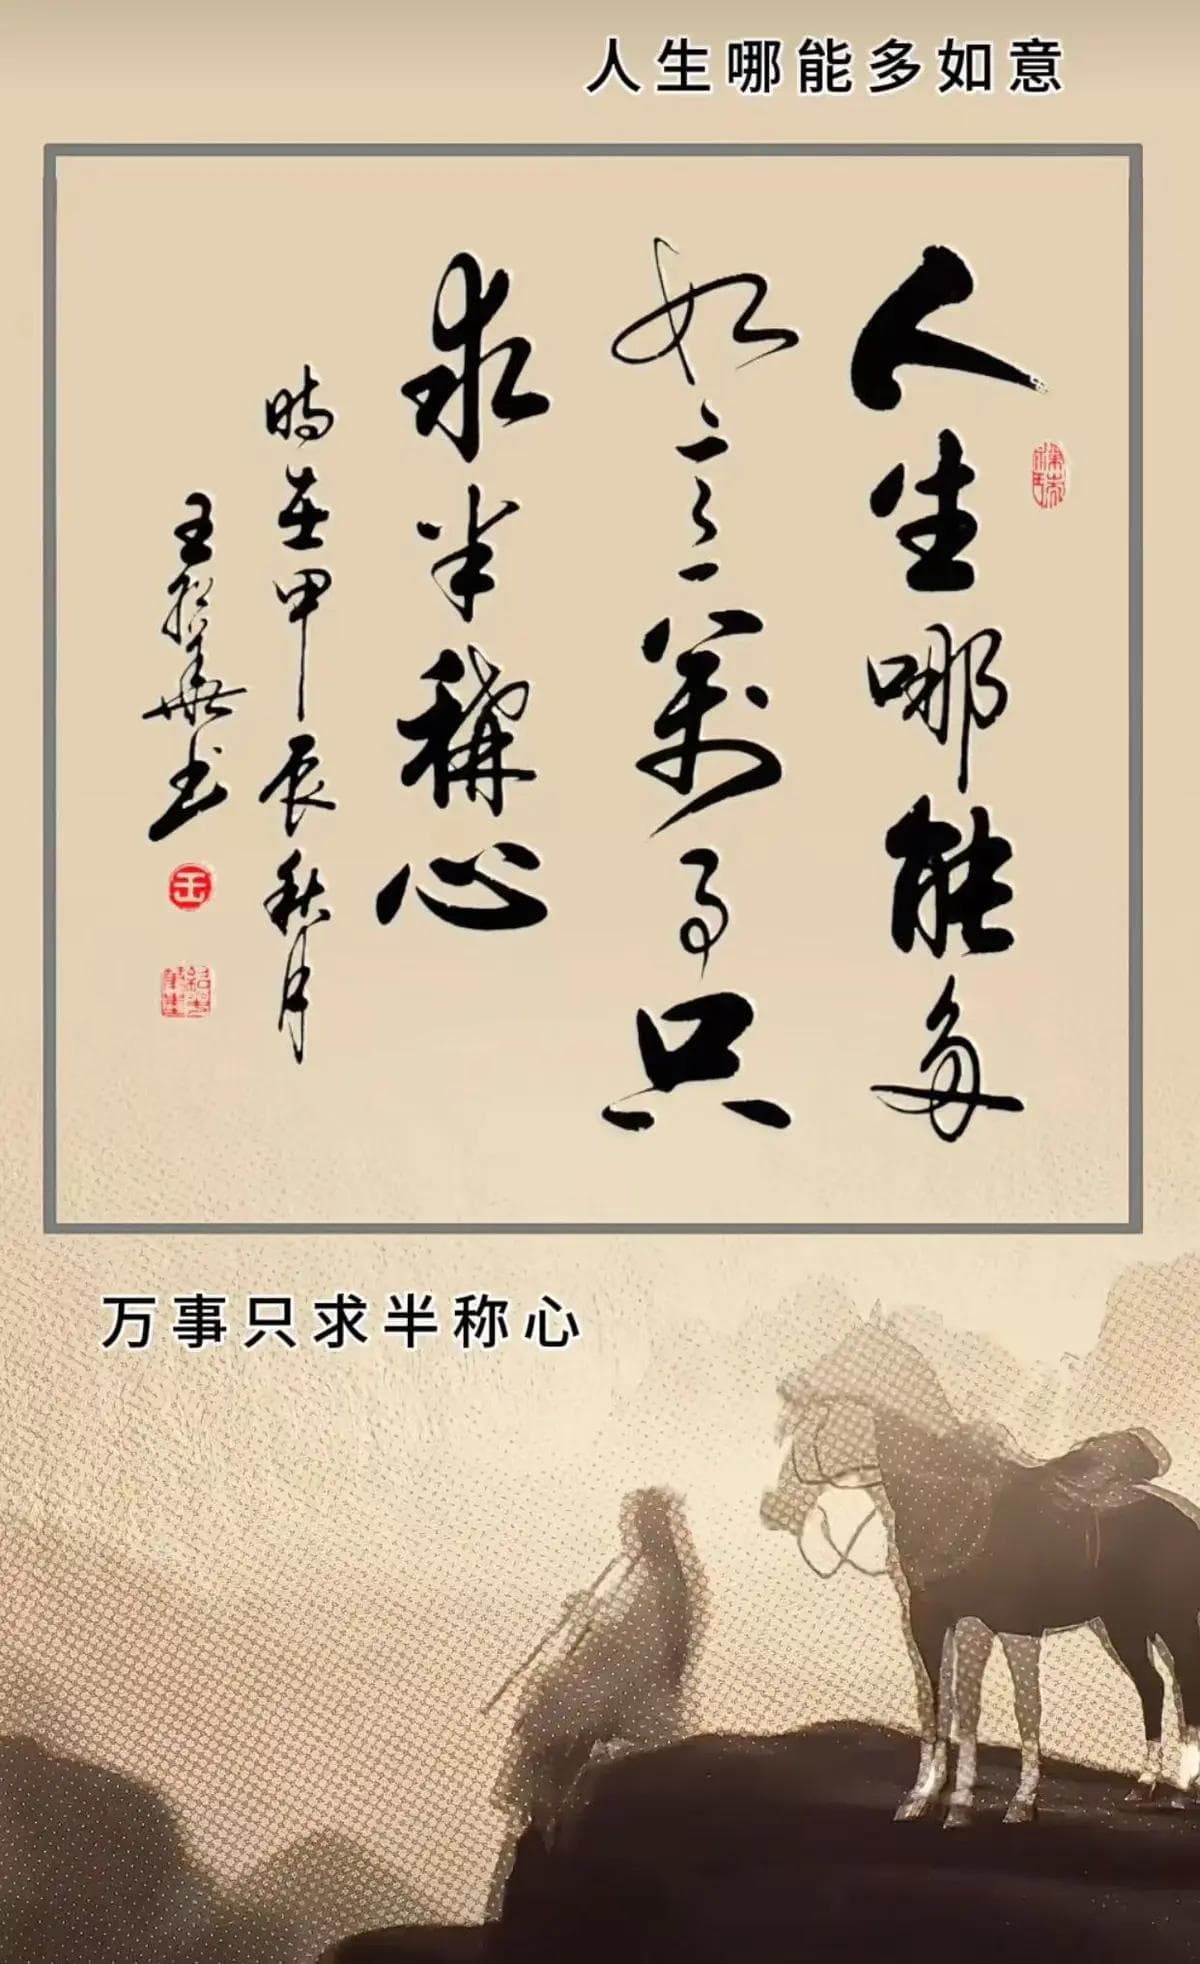 人生哪能多如意
人生哪能多
如意萬事只
求半稱心
時在甲辰秋月
王紹華书
王
万事只求半称心